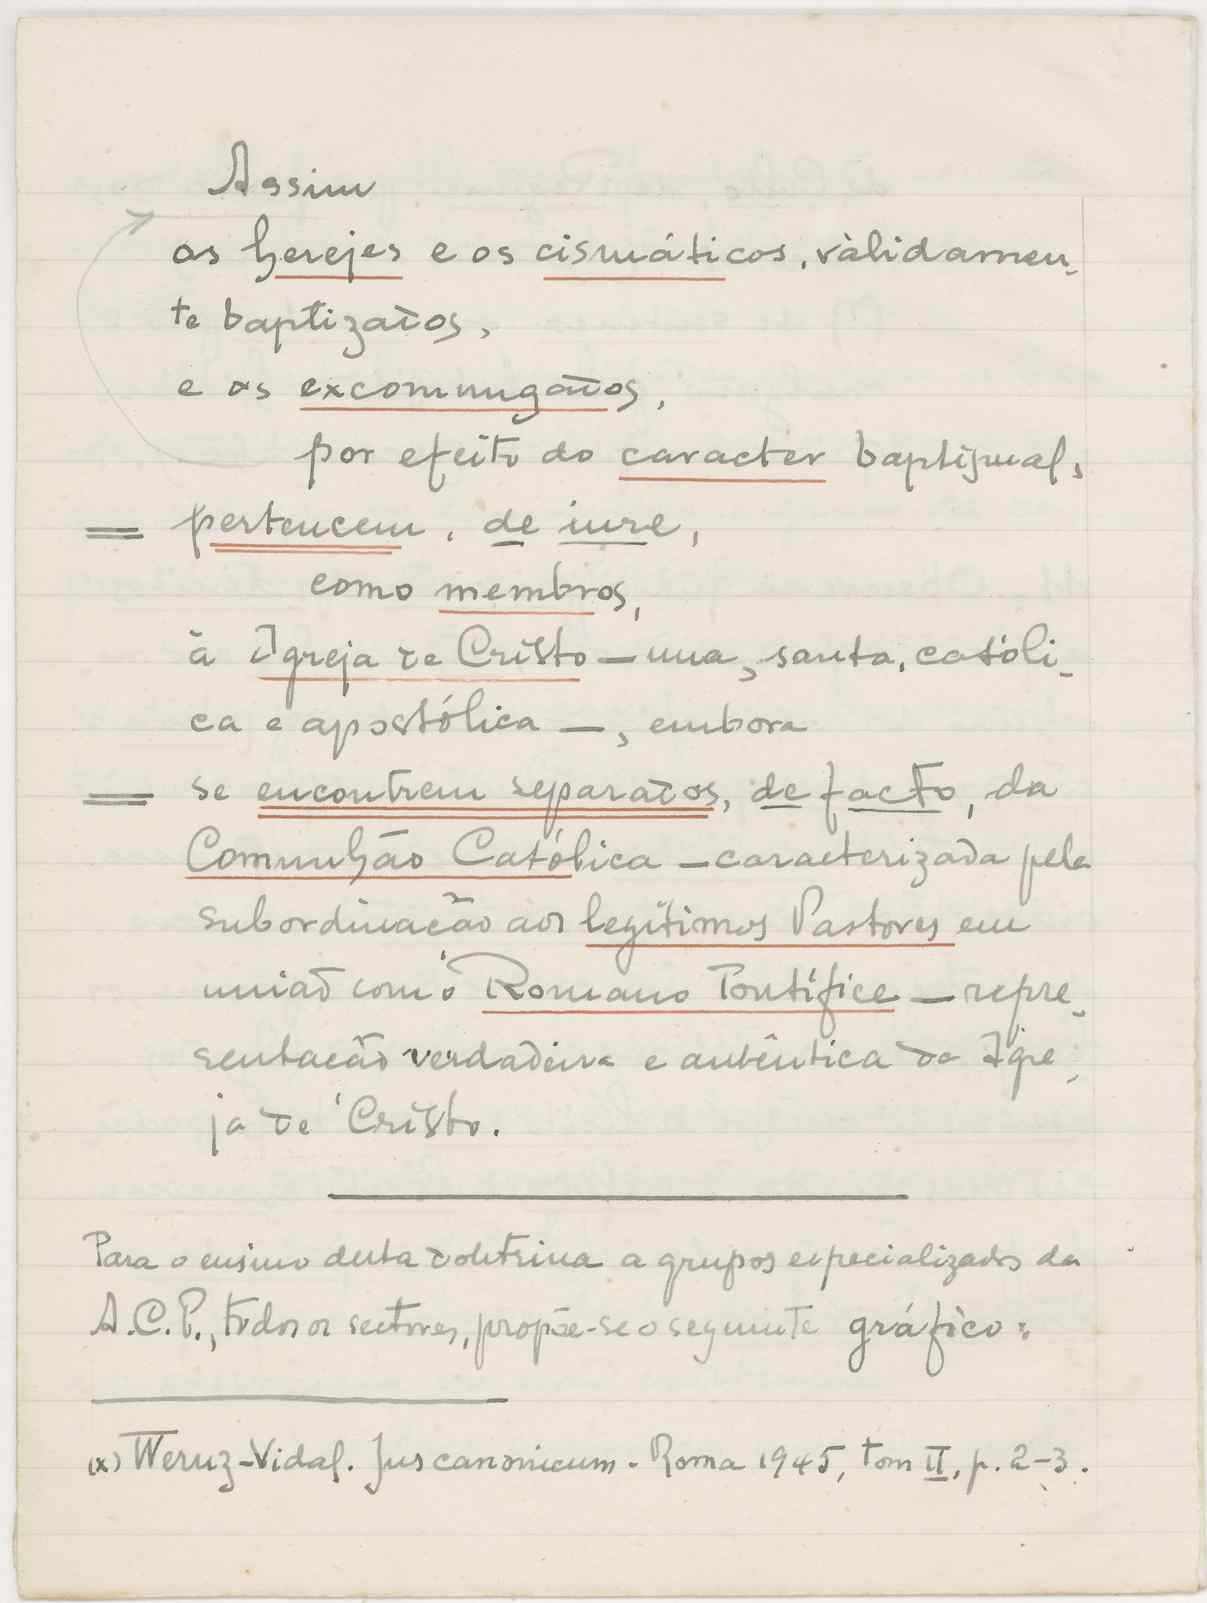 Assim
os herejes e os cismáticos, vàlidamen-
te baptizados,
e os excomungados,
por efeito do caracter baptismal,
pertencem, de iure,
como membros,
à Igreja de Cristo — una, santa, católi-
ca e apostólica —, embora
se encontrem separados, de facto, da
Comunhão Católica — caracterizada pela
subordinação aos legítimos Pastores em
união com o Romano Pontífice — repre-
sentação verdadeira e autêntica da Igre-
ja de Cristo.
Para o ensino desta doutrina a grupos especializados da
A.C.P., todos os sectores, propõe-se o seguinte gráfico:
(x) Wernz-Vidal. Jus canonicum - Roma 1945, tom II, p. 2-3.